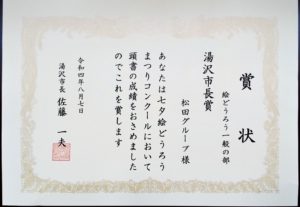 賞状
絵どうろう一般の部
湯沢市長賞
松田グループ様
あなたは七夕絵どうろう
まつりコンクールにおいて
頭書の成績をおさめました
のでこれを賞します
令和四年八月七日
湯沢市長 佐藤一夫